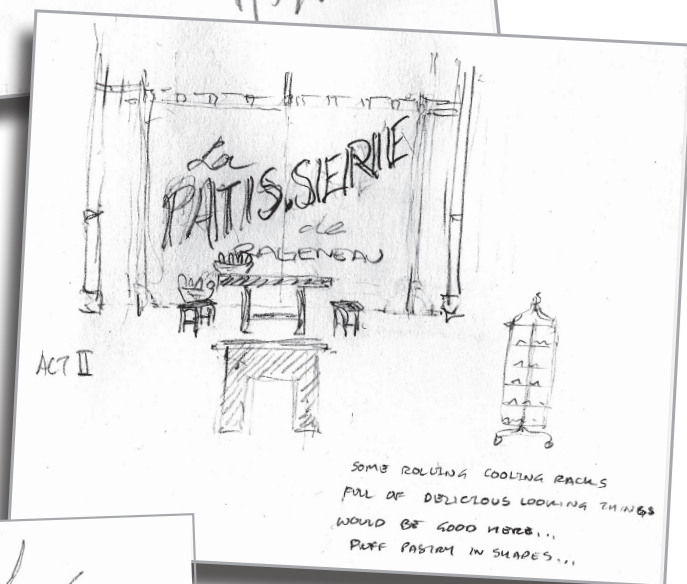 La
PATISSERIE
de
RAGENEAU
ACT II
SOME ROLLING COOLING RACKS
FULL OF DELICIOUS LOOKING THINGS
WOULD BE GOOD HERE...
PUFF PASTRY IN SHAPES...